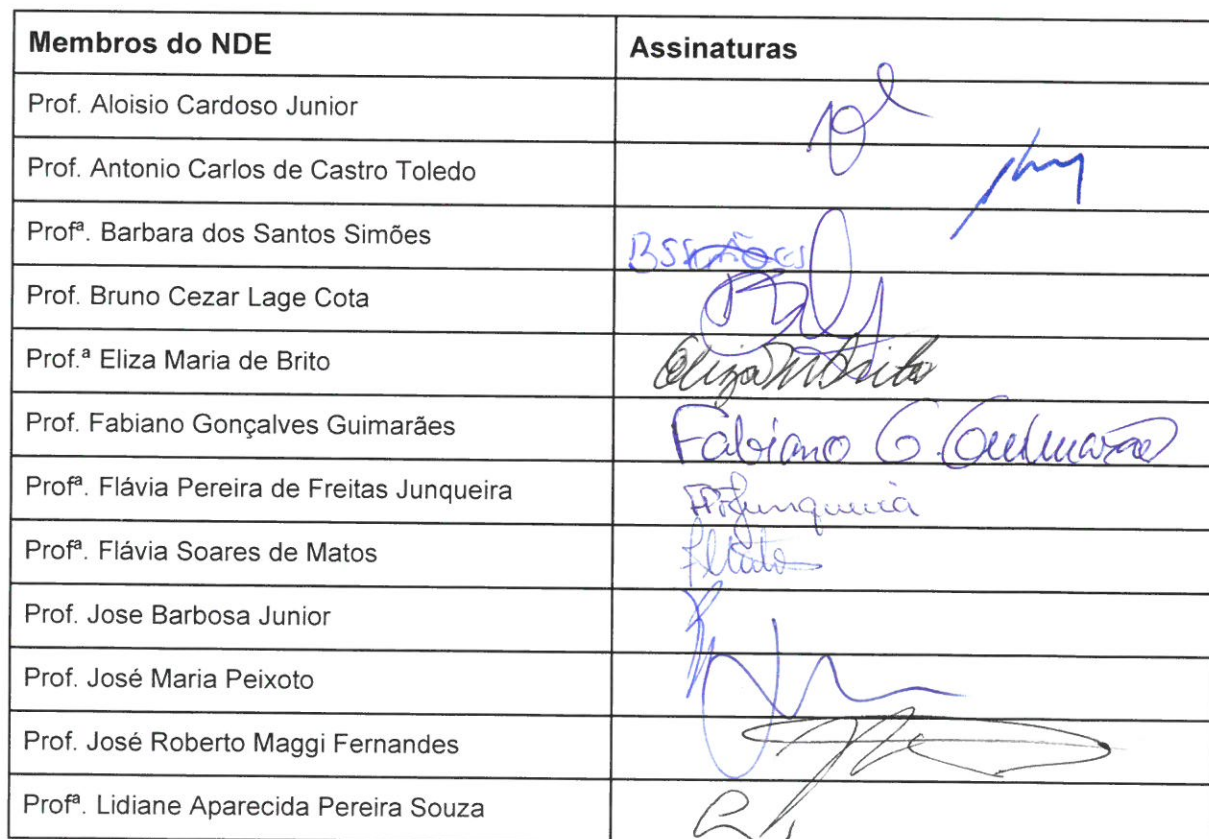 Membros do NDE Assinaturas
Prof. Aloisio Cardoso Junior
Prof. Antonio Carlos de Castro Toledo
Profª. Barbara dos Santos Simões BSSimões
Prof. Bruno Cezar Lage Cota
Prof.ª Eliza Maria de Brito Eliza M Brito
Prof. Fabiano Gonçalves Guimarães Fabiano G. Guimarães
Profª. Flávia Pereira de Freitas Junqueira FPFJunqueira
Profª. Flávia Soares de Matos
Prof. Jose Barbosa Junior
Prof. José Maria Peixoto
Prof. José Roberto Maggi Fernandes
Profª. Lidiane Aparecida Pereira Souza